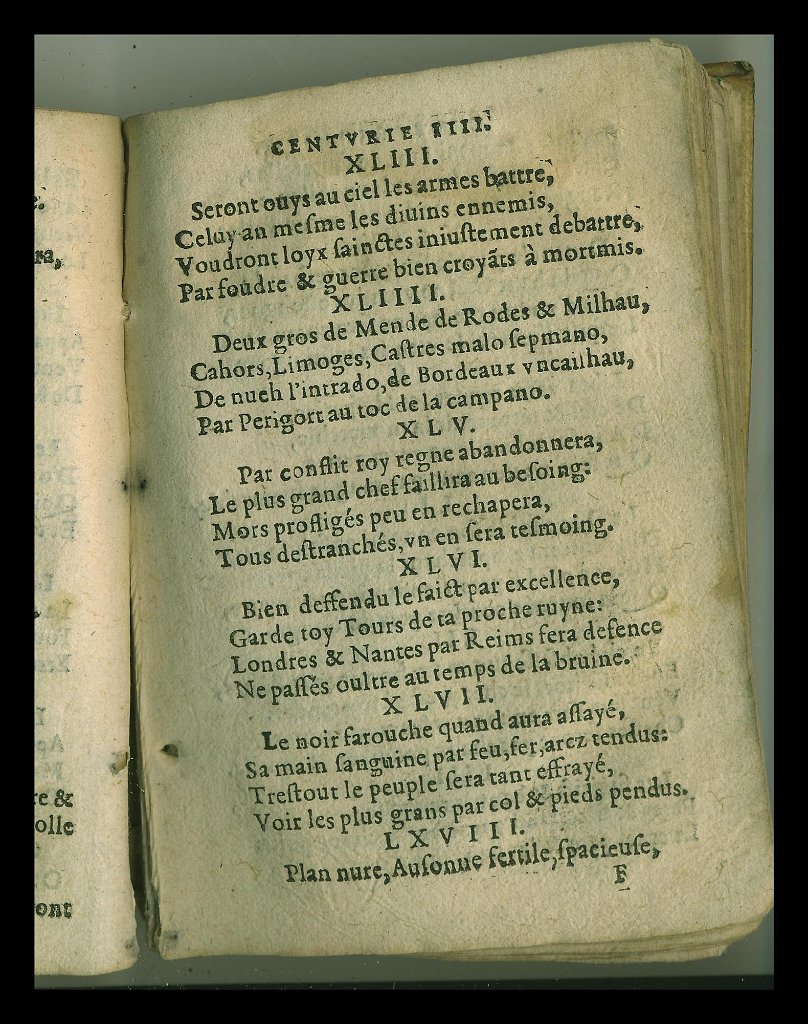 e.
ra,
re &
olle
ont
CENTVRIE IIII.
XLIII.
Seront ouys au ciel les armes battre,
Celuy an meſme les diuins ennemis,
Voudront loyx ſainctes iniuſtement debattre,
Par foudre & guerre bien croyãts à mortmis.
XLIIII.
Deux gros de Mende de Rodes & Milhau,
Cahors, Limoges, Caſtres malo ſepmano,
De nueh l'intrado, de Bordeaux vncailhau,
Par Perigort au toc de la campano.
XLV.
Par conflit roy regne abandonnera,
Le plus grand chef faillira au beſoing:
Mors profligés peu en rechapera,
Tous deſtranchés, vn en ſera teſmoing.
XLVI.
Bien deffendu le faict par excellence,
Garde toy Tours de ta proche ruyne:
Londres & Nantes par Reims fera defence
Ne paſſés oultre au temps de la bruine.
XLVII.
Le noir farouche quand aura aſſayé,
Sa main ſanguine par feu, fer, arcz tendus:
Treſtout le peuple ſera tant effrayé,
Voir les plus grans par col & pieds pendus.
LXVIII.
Plan nure, Auſonue fertile, ſpacieuſe,
F